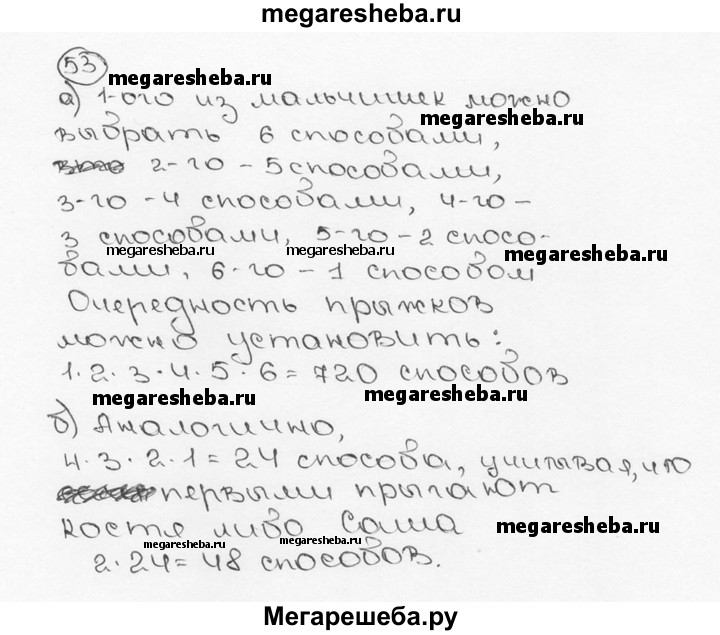 megaresheba.ru
53
megaresheba.ru
а) 1-ого из мальчишек можно
megaresheba.ru
выбрать 6 способами,
2-го - 5 способами,
3-го - 4 способами, 4-го -
3 способами, 5-го - 2 спосо-
megaresheba.ru megaresheba.ru
бами, 6-го - 1 способом
Очередность прыжков
можно установить:
1·2·3·4·5·6=720 способов
megaresheba.ru megaresheba.ru
б) Аналогично,
4·3·2·1=24 способа, учитывая, что
первыми прыгают
Костя либо Саша
megaresheba.ru
megaresheba.ru megaresheba.ru
2·24=48 способов.
Мегарешеба.ру